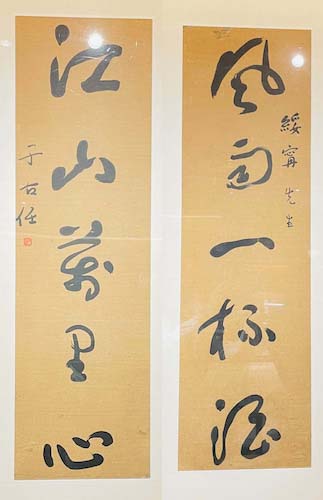 風雨一杯酒
綏甯先生
江山萬里心
于右任